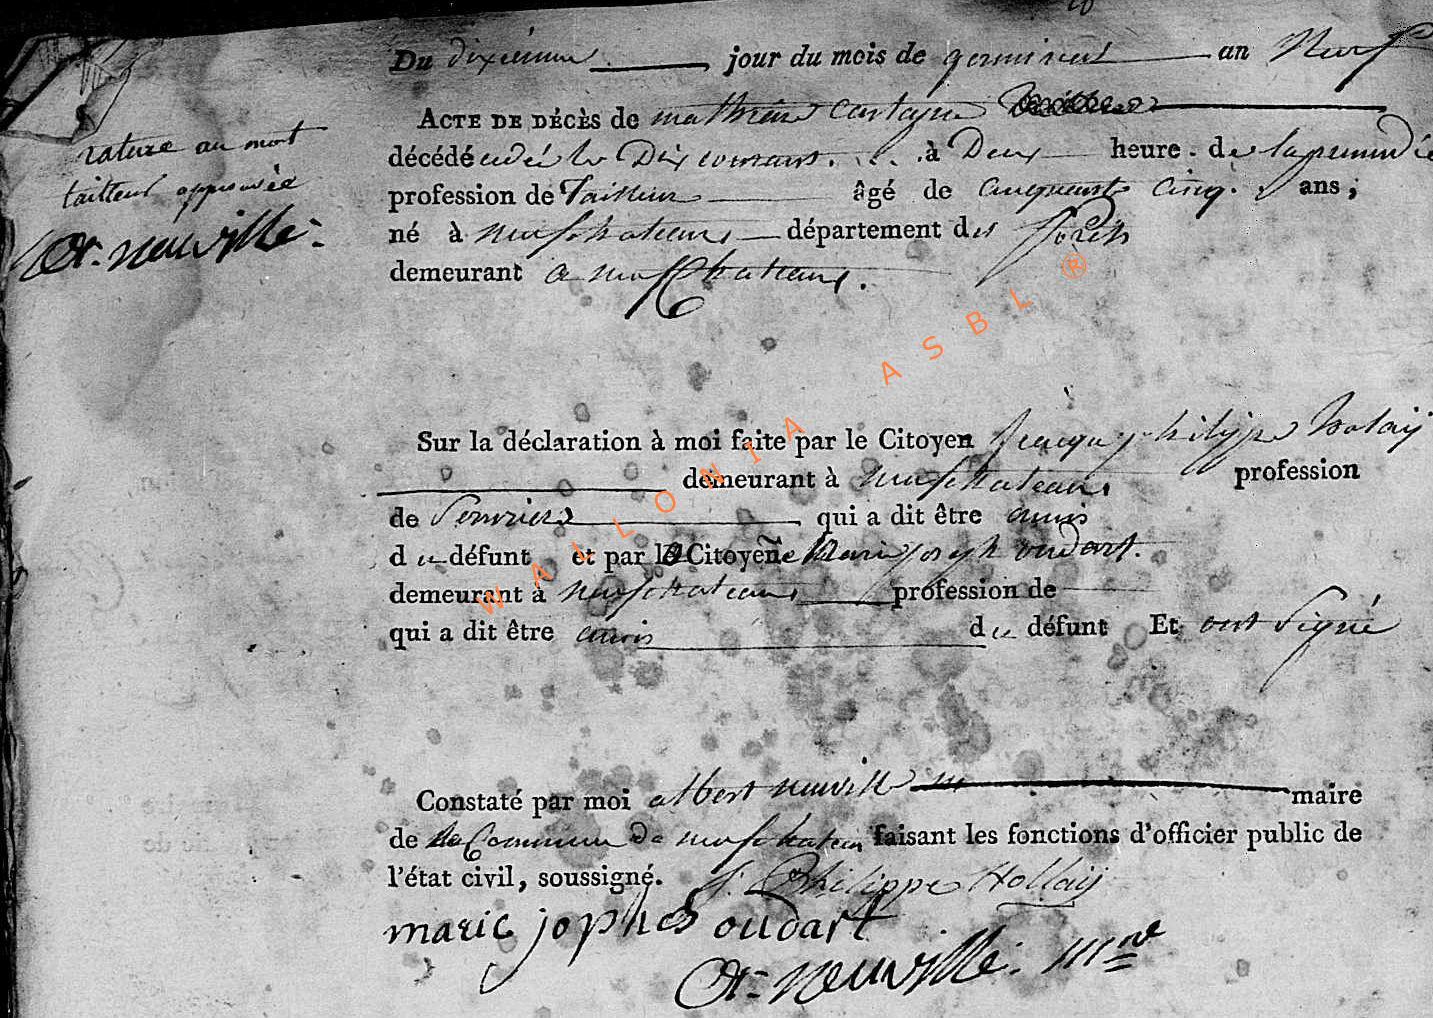 Du dixieme jour du mois de germinal an Neuf
ACTE DE DÉCÈS de mathieu
décédé le Dix courant. . . . à Deux heure . de
profession de Tailleur âgé de cinquante cinq. ans ;
né à neufchateau département des forêts
demeurant a neufchateau.
rature au mot
tailleur approuvée
At. neuville.
Sur la déclaration à moi faite par le Citoyen philippe
demeurant à neufchateau profession
de qui a dit être amis
du défunt et par la Citoyene Marie joseph oudart.
demeurant à neufchateau profession de
qui a dit être amis du défunt Et ont signé
Constaté par moi albert neuville maire
de la Commune de neufchateau faisant les fonctions d'officier public de
l'état civil, soussigné. j. Philippe Hollaij
marie jophes oudart
At. neuville. mre
WALLONIA ASBL ®